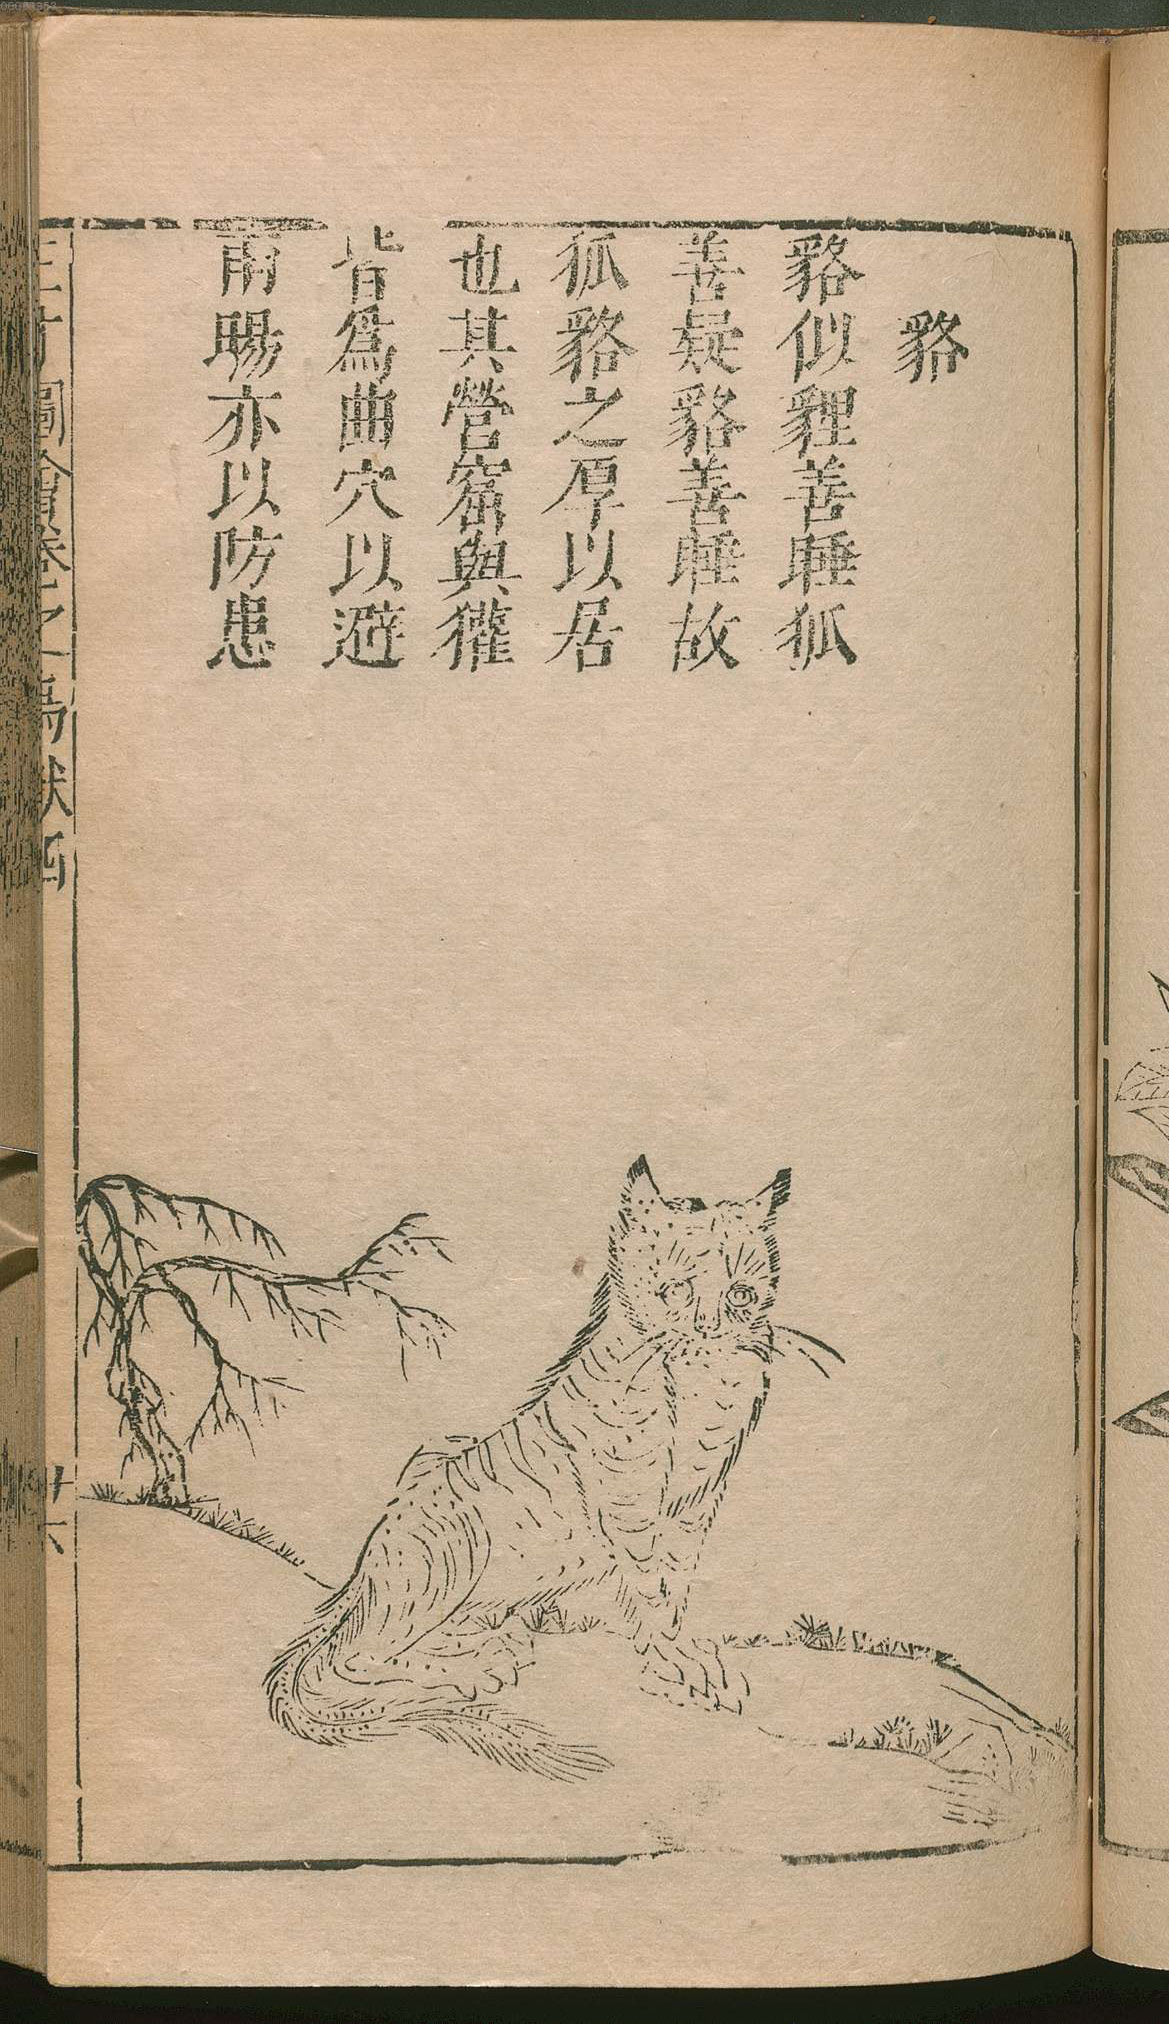 貉
貉似貍善睡狐
善疑貉善睡故
狐貉之厚以居
也其營窟與獾
皆爲曲穴以避
雨暘亦以防患
圖會卷之
鳥獸四